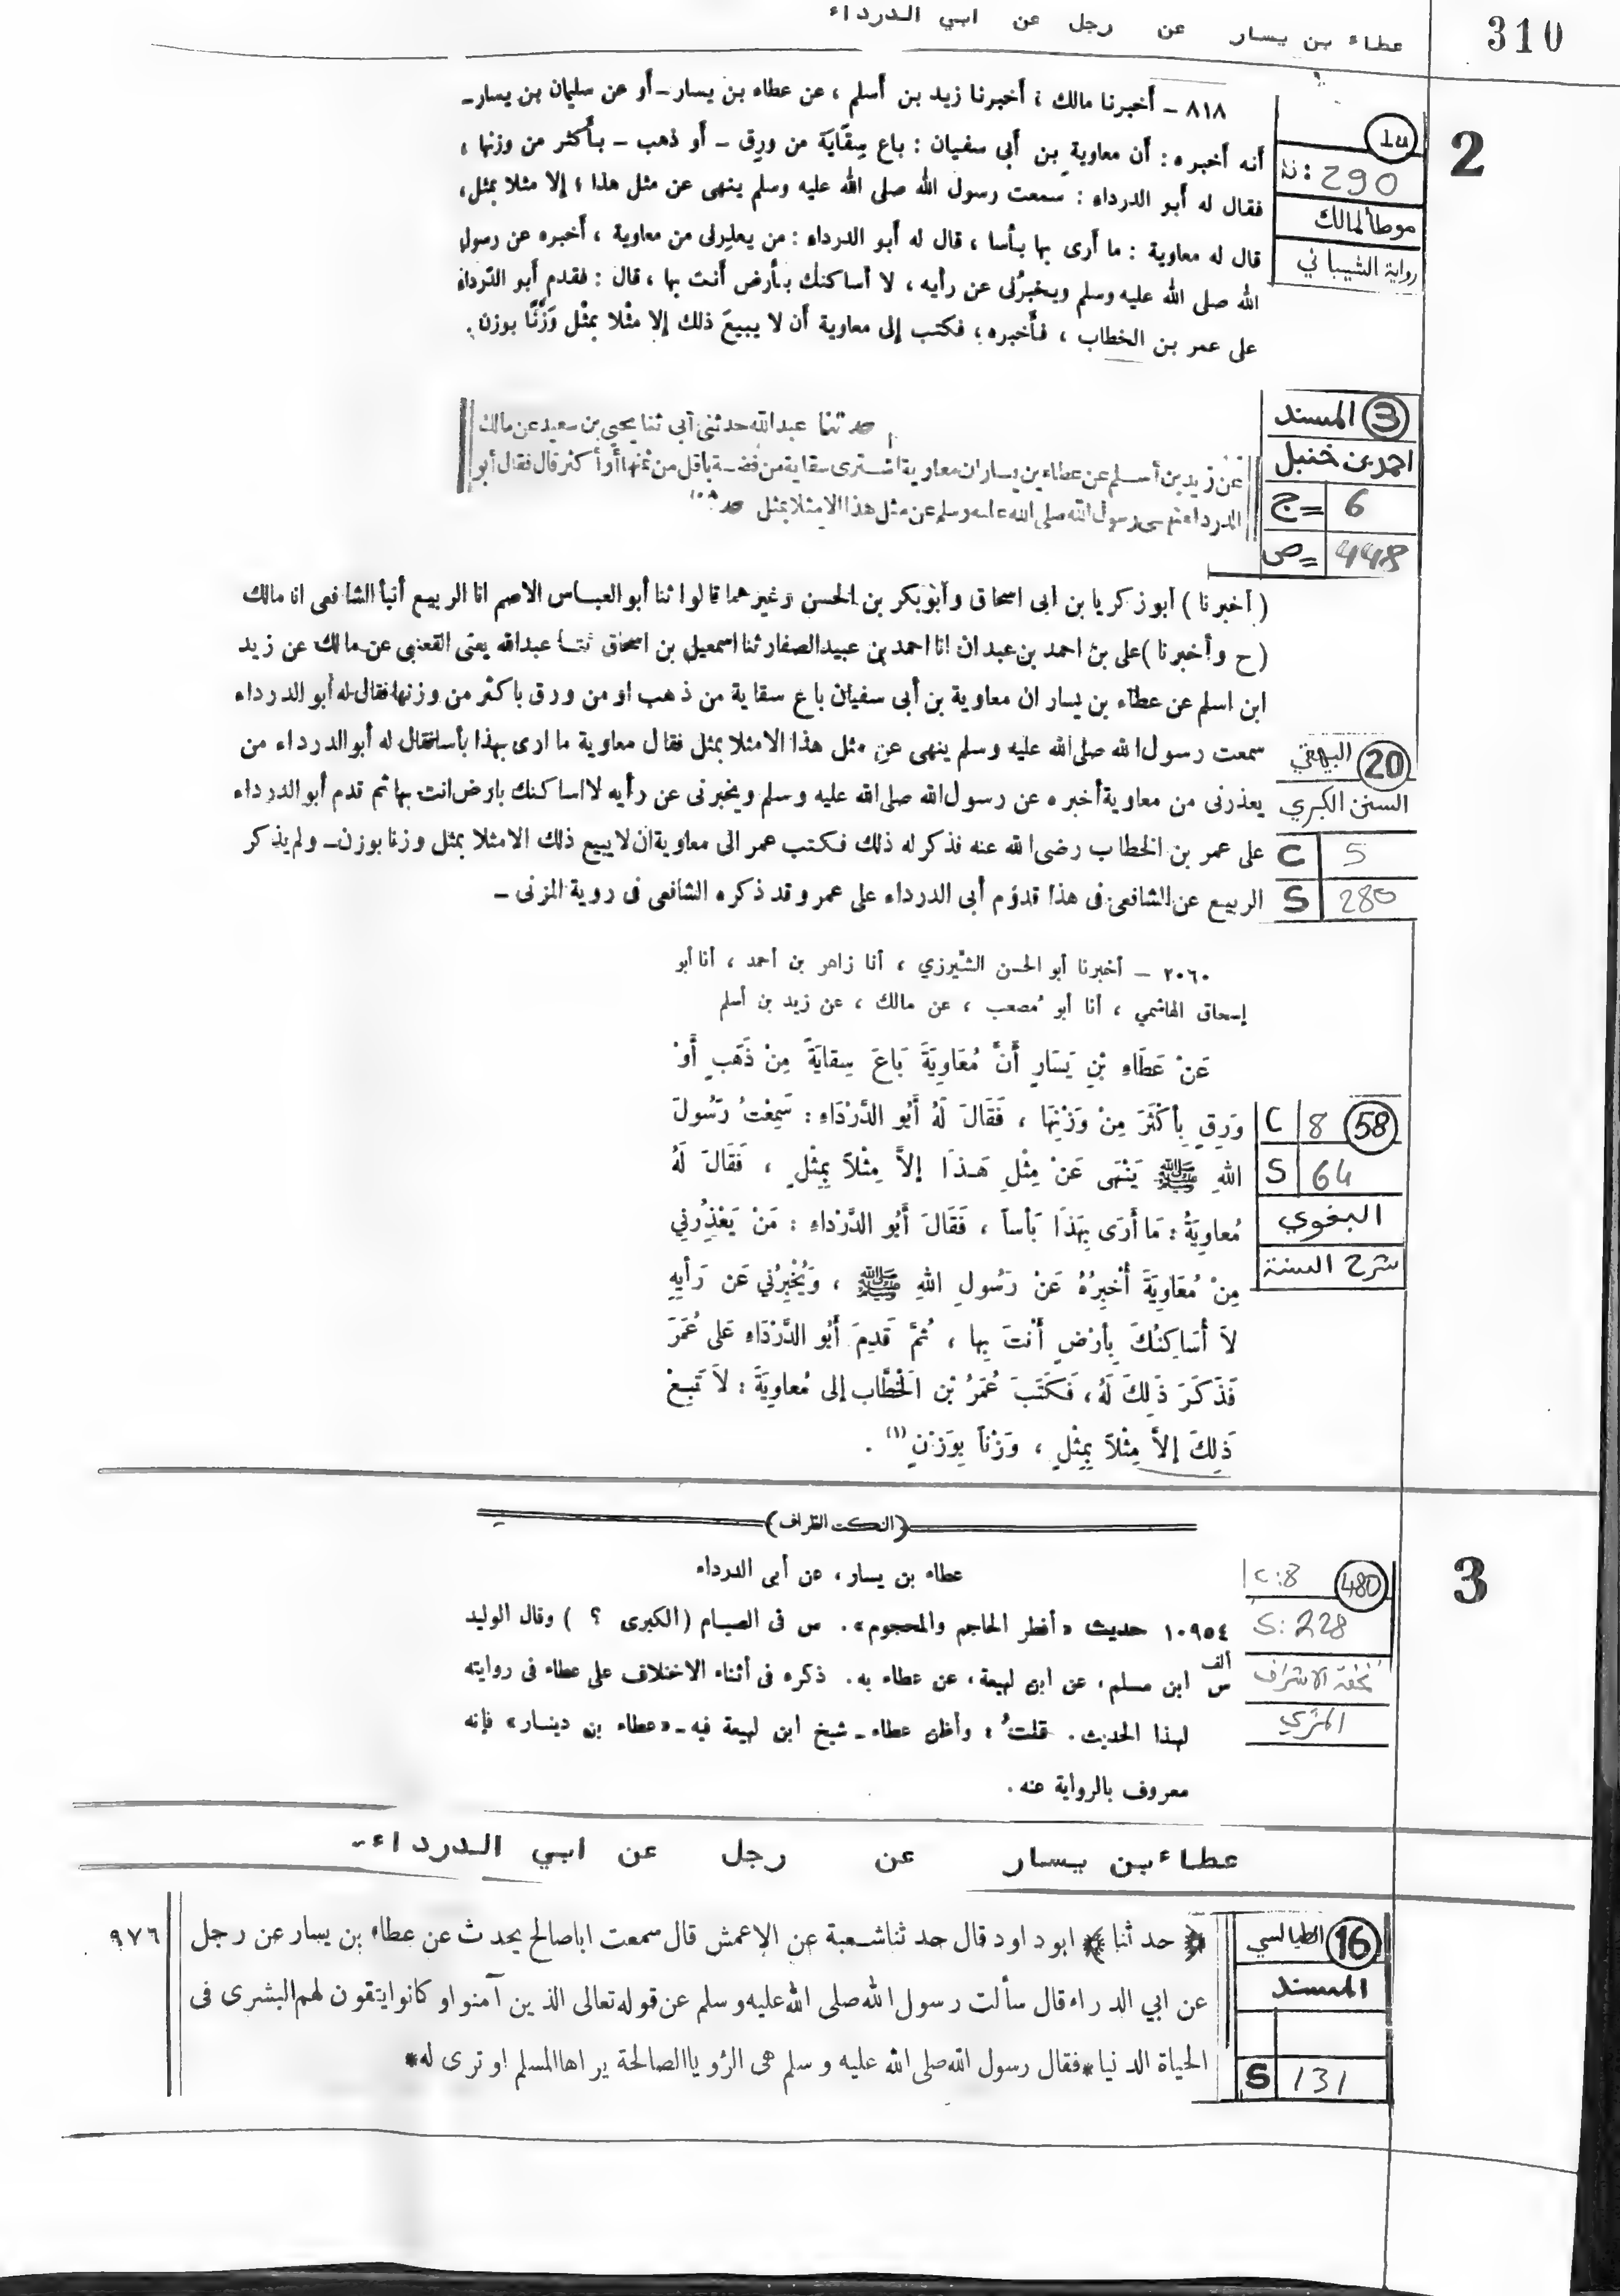 310
عطاء بن يسار عن رجل عن ابي الدرداء
2
1u
N: 290
موطأ لمالك
رواية الشيباني
٨١٨ – أخبرنا مالك ؛ أخبرنا زيد بن أسلم ، عن عطاء بن يسار – أو عن سليمان بن يسار –
أنه أخبره : أن معاوية بن أبى سفيان : باع سِقَّايَة من ورِق – أو ذهب – بأكثر من وزنها ،
فقال له أبو الدرداء : سمعت رسول الله صلى الله عليه وسلم ينهى عن مثل هذا ؛ إلا مثلا بمثل ،
قال له معاوية : ما أرى بها بأسا ، قال له أبو الدرداء : من يعذِرنى من معاوية ، أخبره عن رسول
الله صلى الله عليه وسلم ويخبرُنى عن رأيه ، لا أساكنك بأرض أنت بها ، قال : فقدم أبو الدَّرداء
على عمر بن الخطاب ، فأخبره ؛ فكتب إلى معاوية أن لا يبيعَ ذلك إلا مثْلا بمثْل وَزْنًا بوزن .
3 المسند
احمد بن حنبل
ج= 6
ص= 448
حدثنا عبد الله حدثنى أبى ثنا يحيى بن سعيد عن مالك
عن زيد بن أسلم عن عطاء بن يسار ان معاوية اشترى سقاية من فضة باقل من ثمنها أو أكثر قال فقال أبو
الدرداء نهى رسول الله صلى الله عليه وسلم عن مثل هذا الا مثلا بمثل
( أخبرنا ) أبو زكريا بن أبى اسحاق وأبو بكر بن الحسن وغيرهما قالوا ثنا أبو العباس الاصم انا الربيع أنبأ الشافعى انا مالك
( ح وأخبرنا ) على بن احمد بن عبدان انا احمد بن عبيد الصفار ثنا اسمعيل بن اسحاق ثنا عبد الله يعنى القعنبى عن مالك عن زيد
ابن اسلم عن عطاء بن يسار ان معاوية بن أبى سفيان باع سقاية من ذهب او من ورق باكثر من وزنها فقال له أبو الدرداء
سمعت رسول الله صلى الله عليه وسلم ينهى عن مثل هذا الا مثلا بمثل فقال معاوية ما ارى بهذا بأسا فقال له أبو الدرداء من
يعذرنى من معاوية أخبره عن رسول الله صلى الله عليه وسلم ويخبرنى عن رأيه لا اساكنك بارض انت بها ثم قدم أبو الدرداء
على عمر بن الخطاب رضى الله عنه فذكر له ذلك فكتب عمر الى معاوية ان لا يبيع ذلك الا مثلا بمثل وزنا بوزن – ولم يذكر
الربيع عن الشافعى فى هذا قدوم أبى الدرداء على عمر وقد ذكره الشافعى فى روية المزنى –
20 البيهقي
السنن الكبرى
C 5
S 280
٢٠٦٠ – أخبرنا أبو الحسن الشّيرزي ، أنا زاهر بن أحمد ، أنا أبو
إسحاق الهاشمي ، أنا أبو مُصعب ، عن مالك ، عن زيد بن أسلم
عَنْ عَطَاءِ بْنِ يَسَارٍ أَنَّ مُعَاوِيَةَ بَاعَ سِقايَةً مِنْ ذَهَبٍ أَوْ
وَرِقٍ بِأَكْثَرَ مِنْ وَزْنِهَا ، فَقَالَ لَهُ أَبُو الدَّرْدَاءِ : سَمِعْتُ رَسُولَ
اللهِ ﷺ يَنْهَى عَنْ مِثْلِ هَـذَا إلاَّ مِثْلاً بِمِثْلٍ ، فَقَالَ لَهُ
مُعاوِيَةُ : مَا أَرَى بِهَذَا بَأْساً ، فَقَالَ أَبُو الدَّرْداءِ : مَنْ يَعْذِرُني
مِنْ مُعَاوِيَةَ أُخْبِرُهُ عَنْ رَسُولِ اللهِ ﷺ ، وَيُخْبِرُني عَن رَأيِهِ
لاَ أُسَاكِنُكَ بِأَرْضٍ أَنْتَ بِها ، ثُمَّ قَدِمَ أَبُو الدَّرْدَاءِ عَلى عُمَرَ
فَذَكَرَ ذَلِكَ لَهُ ، فَكَتَبَ عُمَرُ بْن الْخَطَّاب إلى مُعاوِيَةَ : لاَ تَبِعْ
ذَلِكَ إلاَّ مِثْلاً بِمِثْلٍ ، وَزْناً بِوَزْنٍ (١) .
58
C 8
S 64
البغوي
شرح السنة
3
(النكت الظراف)
عطاء بن يسار، عن أبى الدرداء
480
C: 8
S: 228
تحفة الاشراف
المزي
١٠٩٥٤ حديث « أفطر الحاجم والمحجوم » . س فى الصيام (الكبرى ؟ ) وقال الوليد
ألف
س ابن مسلم، عن ابن لهيعة، عن عطاء به. ذكره فى أثناء الاختلاف على عطاء فى روايته
لهذا الحديث. قلتُ : وأظن عطاء ـ شيخ ابن لهيعة فيه ـ «عطاء بن دينـار» فإنه
معروف بالرواية عنه .
عطاء بن يسار عن رجل عن ابي الدرداء
16 الطيالسي
المسند
S 131
﴿ حدثنا ﴾ ابو داود قال حدثنا شعبة عن الاعمش قال سمعت ابا صالح يحدث عن عطاء بن يسار عن رجل
٩٧٦
عن ابي الدراء قال سألت رسول الله صلى الله عليه وسلم عن قوله تعالى الذين آمنوا وكانوا يتقون لهم البشرى فى
الحياة الدنيا * فقال رسول الله صلى الله عليه وسلم هى الرؤيا الصالحة يراها المسلم او ترى له *